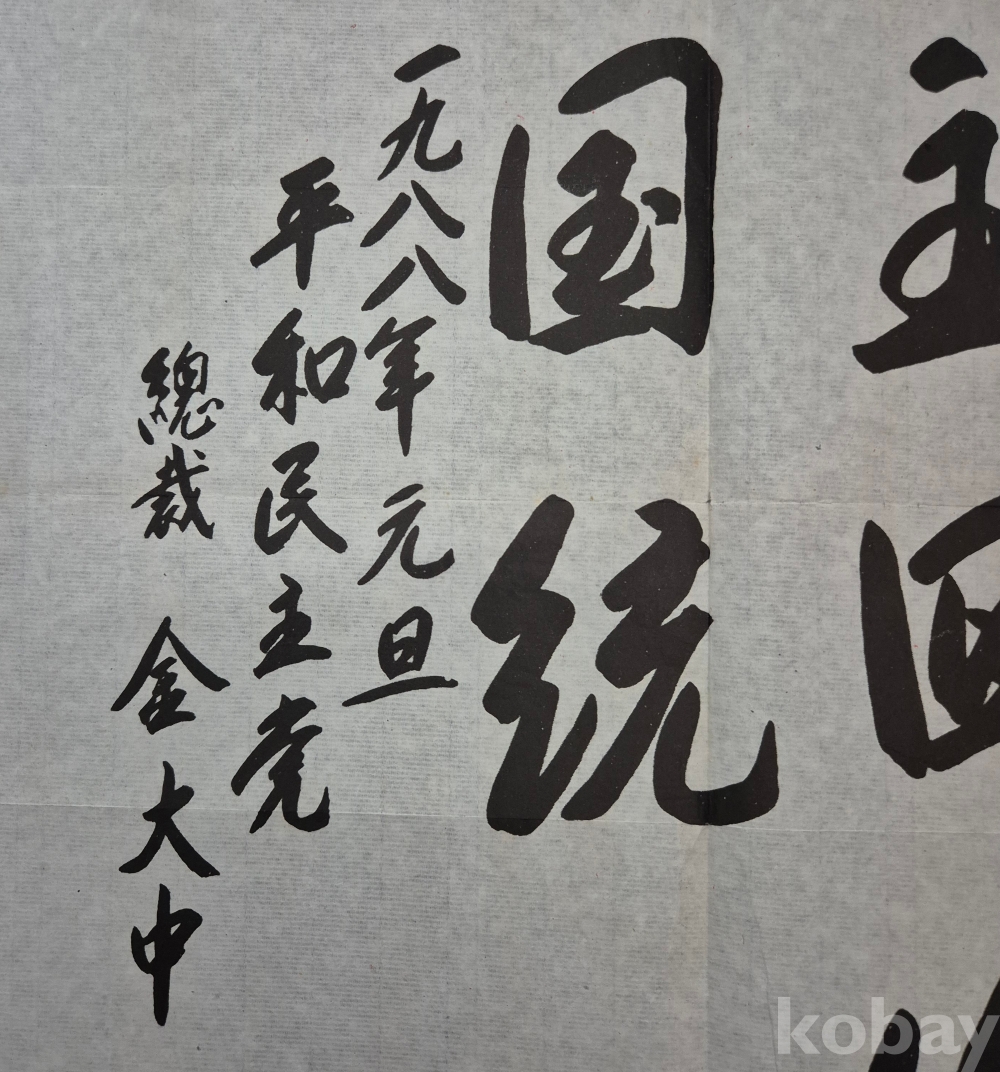 主回
国統
一九八八年 元旦
平和民主党
總裁 金大中
kobay